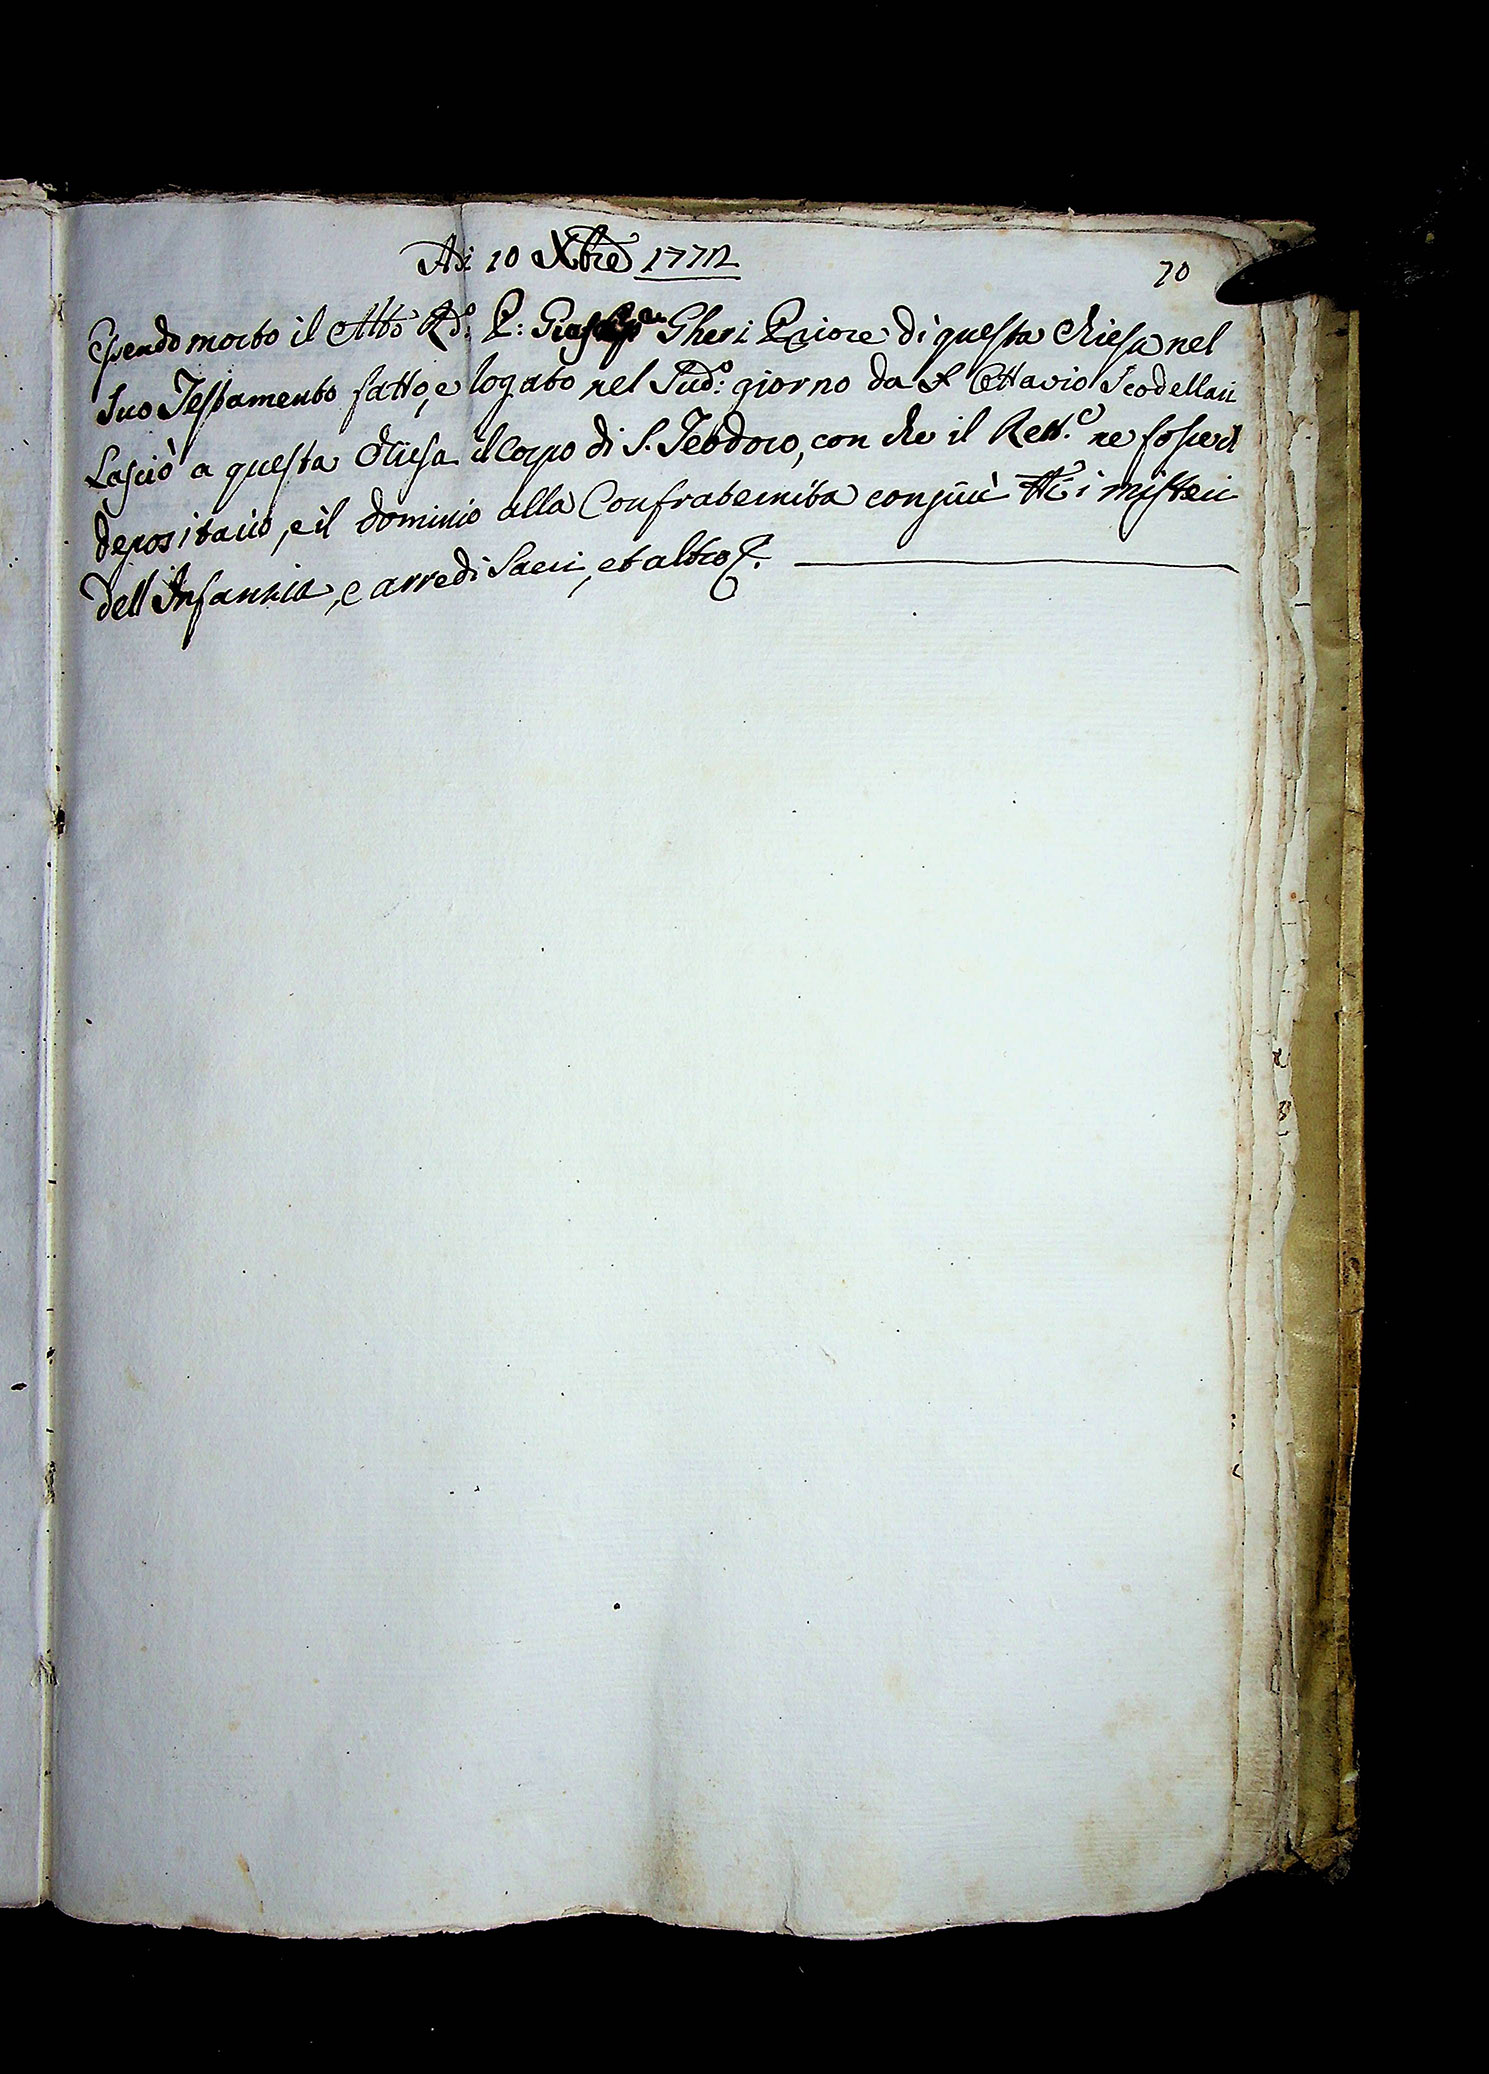 Adì 10 Xbre 1772
70
Essendo morto il Mtõ Rdo: P: Gheri Priore di questa Chiesa nel
suo Testamento fatto, e logato nel Sudo: giorno da Ottavio Scodellari
Lasciò a questa Chiesa il Corpo di S. Teodoro, con che il Rett.e ne fosse il
depositario, e il dominio alla Confraternita con più tti i misteri
dell Infanzia, e arredi Sacri, et altro